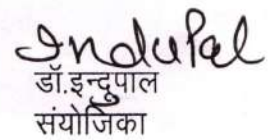 InduPal
डॉ.इन्दुपाल
संयोजिका